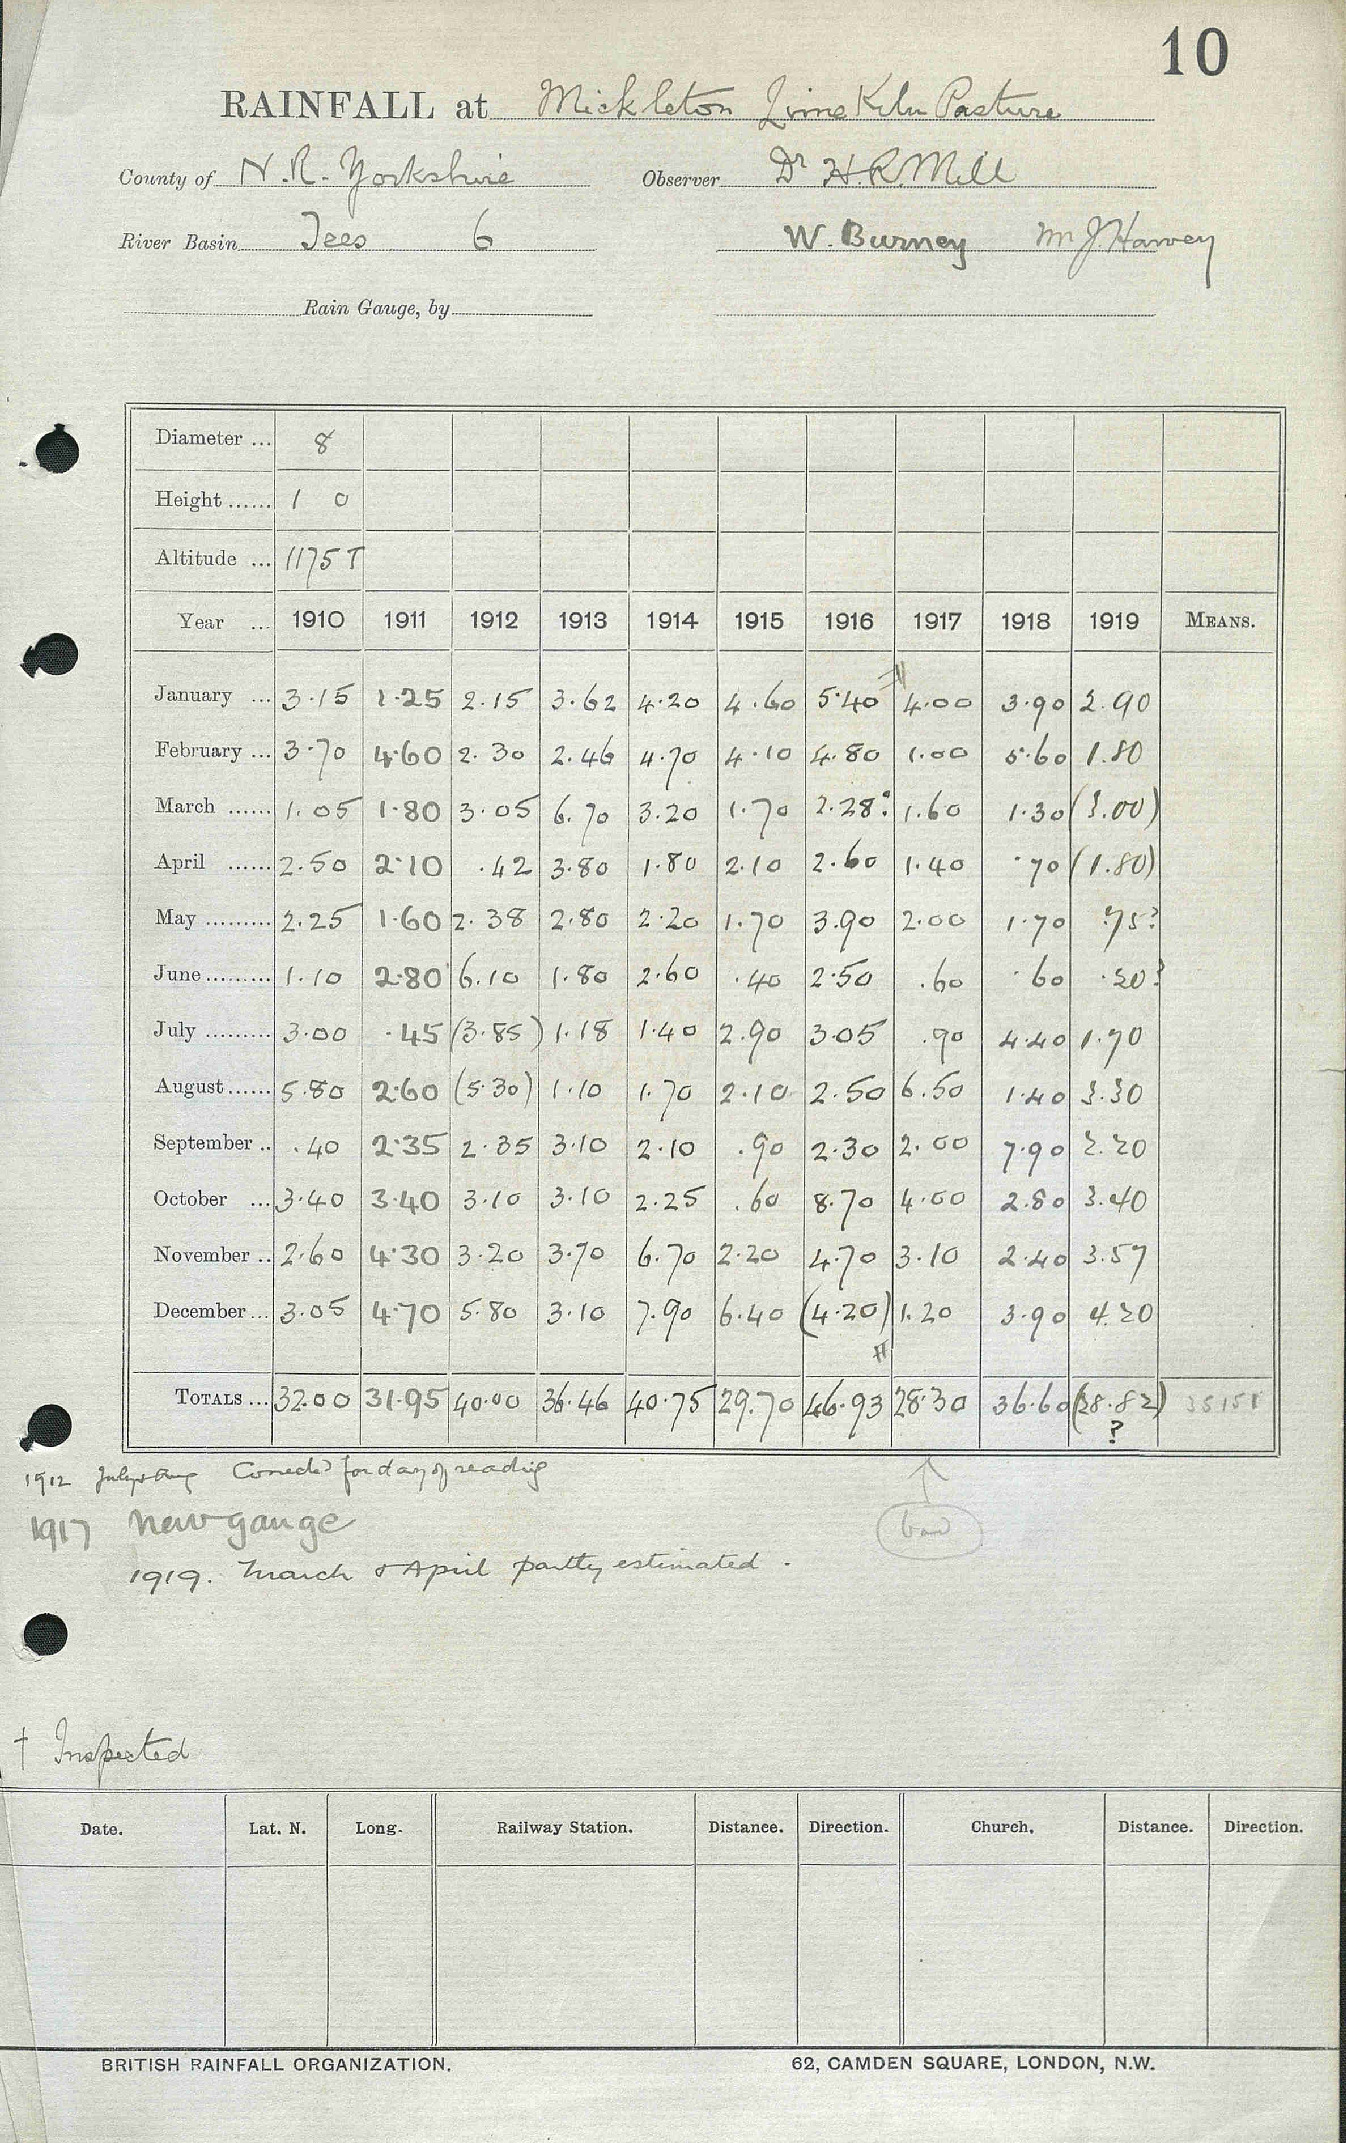 10
RAINFALL at Mickleton Lime Kiln Pasture
County of N.R. Yorkshire Observer Dr H.R. Mill
River Basin Tees 6 W. Burney Mr J Harvey
Rain Gauge, by
Diameter ... 8
Height ...... 1 0
Altitude ... 1175 T
Year ... 1910 1911 1912 1913 1914 1915 1916 1917 1918 1919 MEANS.
January ... 3.15 1.25 2.15 3.62 4.20 4.60 5.40 4.00 3.90 2.90
February ... 3.70 4.60 2.30 2.46 4.70 4.10 4.80 1.00 5.60 1.80
March ...... 1.05 1.80 3.05 6.70 3.20 1.70 2.28? 1.60 1.30 (3.00)
April ...... 2.50 2.10 .42 3.80 1.80 2.10 2.60 1.40 .70 (1.80)
May ......... 2.25 1.60 2.38 2.80 2.20 1.70 3.90 2.00 1.70 .75?
June ......... 1.10 2.80 6.10 1.80 2.60 .40 2.50 .60 .60 .20?
July ......... 3.00 .45 (3.85) 1.18 1.40 2.90 3.05 .90 4.40 1.70
August ...... 5.80 2.60 (5.30) 1.10 1.70 2.10 2.50 6.50 1.40 3.30
September .. .40 2.35 2.35 3.10 2.10 .90 2.30 2.00 7.90 2.20
October ... 3.40 3.40 3.10 3.10 2.25 .60 8.70 4.00 2.80 3.40
November .. 2.60 4.30 3.20 3.70 6.70 2.20 4.70 3.10 2.40 3.57
December ... 3.05 4.70 5.80 3.10 7.90 6.40 (4.20) 1.20 3.90 4.20
TOTALS ... 32.00 31.95 40.00 36.46 40.75 29.70 46.93 28.30 36.60 (28.82) 35151
?
1912 July & Aug Corrected for day of reading
1917 New gauge
bad
1919. March & April partly estimated.
† Inspected
Date. Lat. N. Long. Railway Station. Distance. Direction. Church. Distance. Direction.
BRITISH RAINFALL ORGANIZATION. 62, CAMDEN SQUARE, LONDON, N.W.